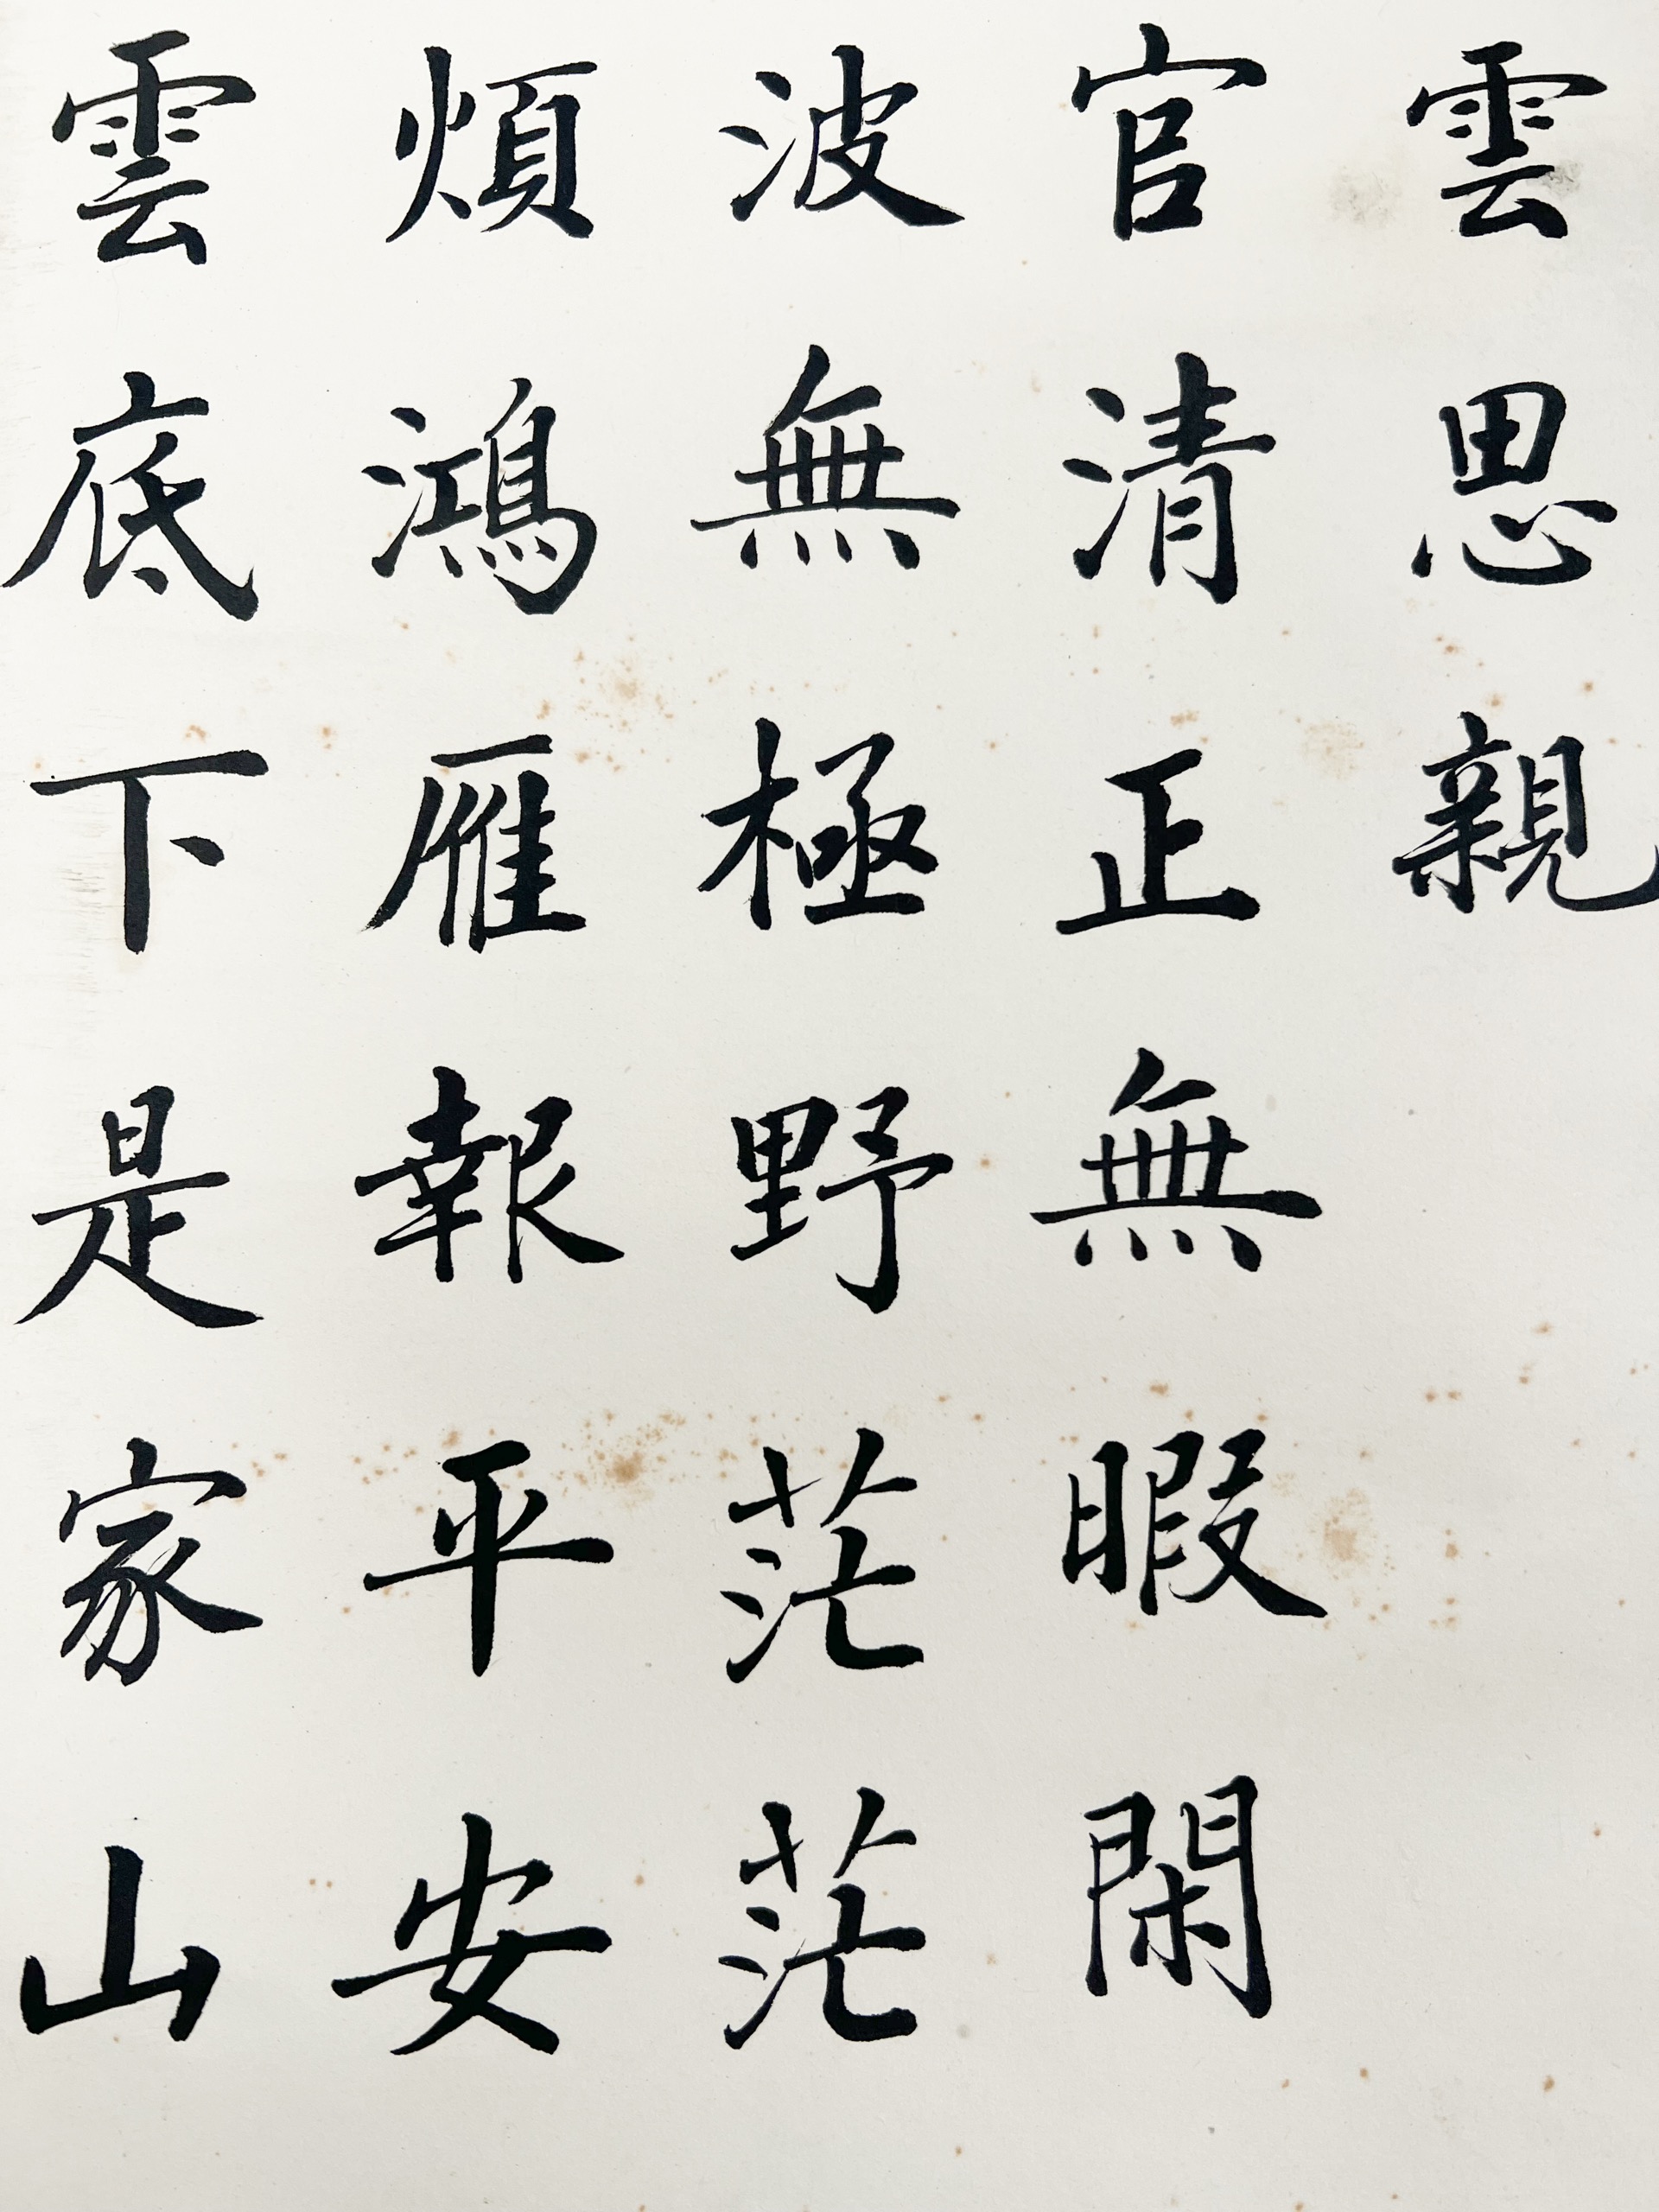 雲思親
官清正無暇閑
波無極野茫茫
煩鴻雁報平安
雲底下是家山